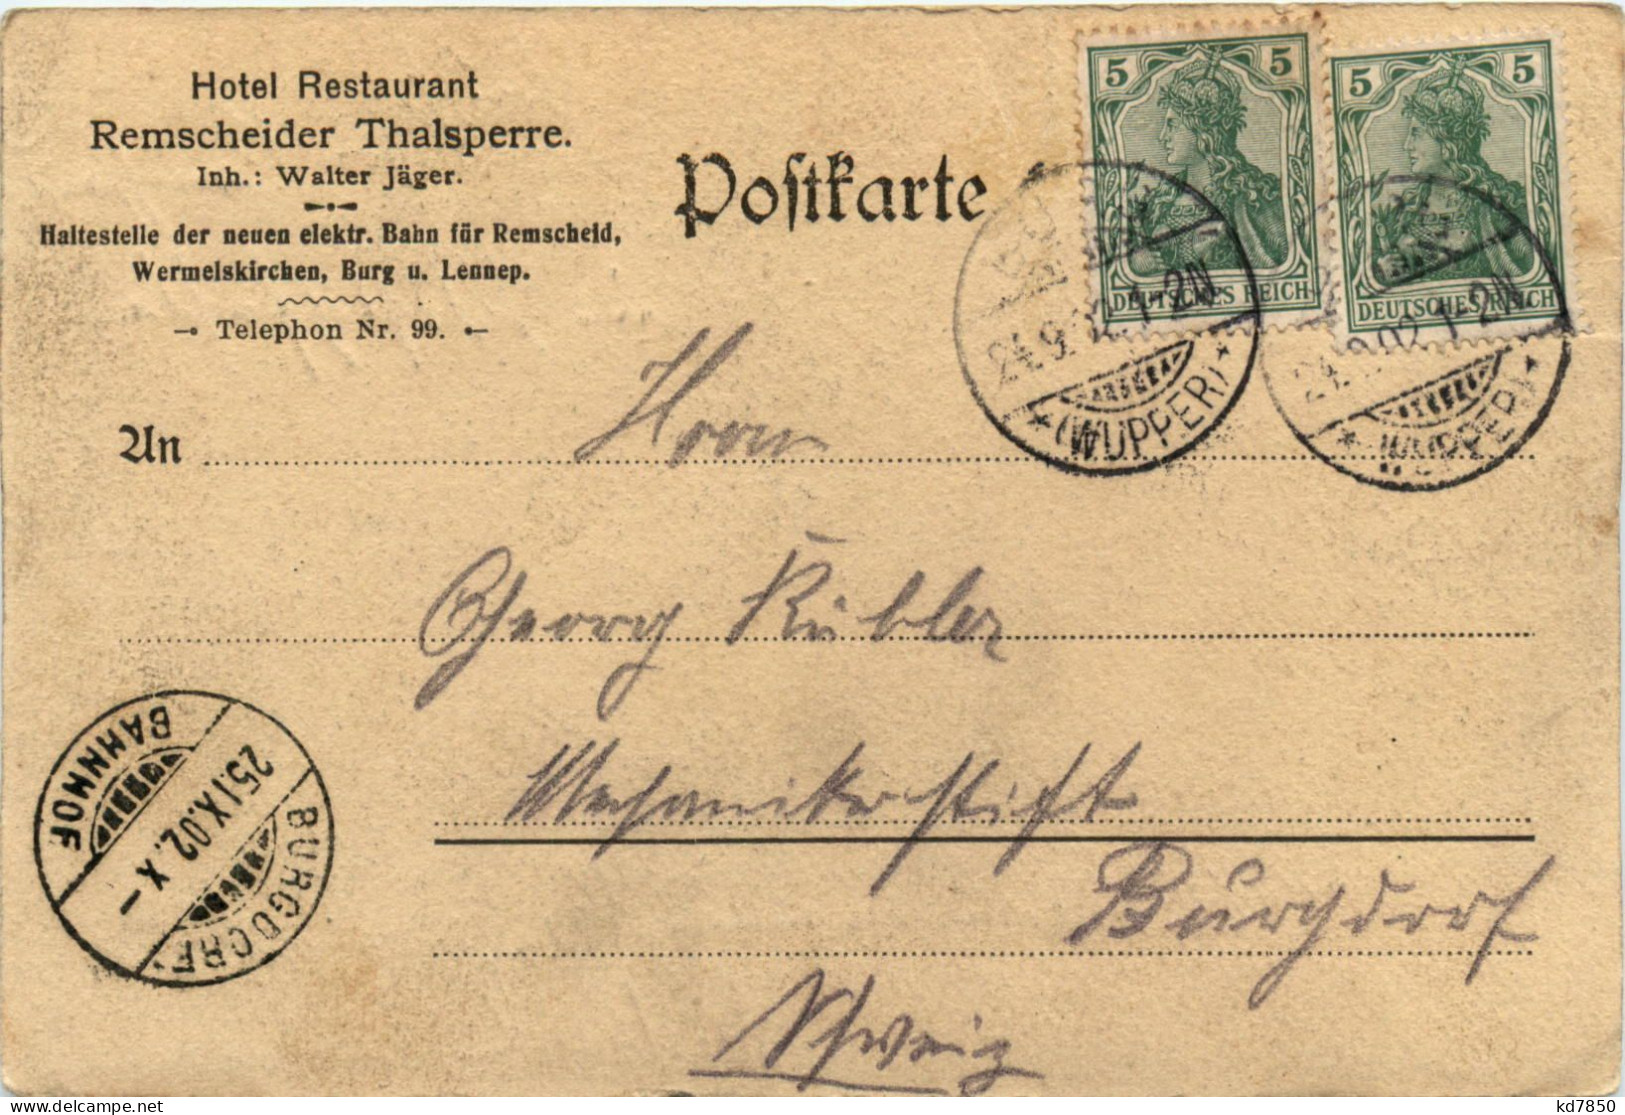 Hotel Restaurant
Remscheider Thalsperre.
Inh.: Walter Jäger.
Haltestelle der neuen elektr. Bahn für Remscheid,
Wermelskirchen, Burg u. Lennep.
Telephon Nr. 99.
Postkarte
5 5
DEUTSCHES REICH
5 5
DEUTSCHES REICH
24.9. 1-2N
(WUPPER)
02 1-2N
(WUPPER)
An Herrn
Georg Kübler
Mechanikerstift
Burgdorf
Schweiz
BAHNHOF
25.IX.02. X
BURGDORF
kd7850